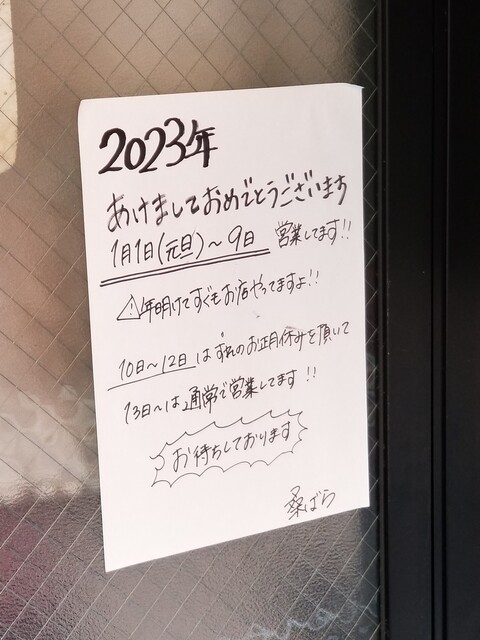 2023年
あけましておめでとうございます
1月1日(元旦)～9日 営業してます!!
⚠年明けてすぐもお店やってますよ!!
10日～12日はずれのお正月休みを頂いて
13日～は通常で営業してます!!
お待ちしております
桑ばら